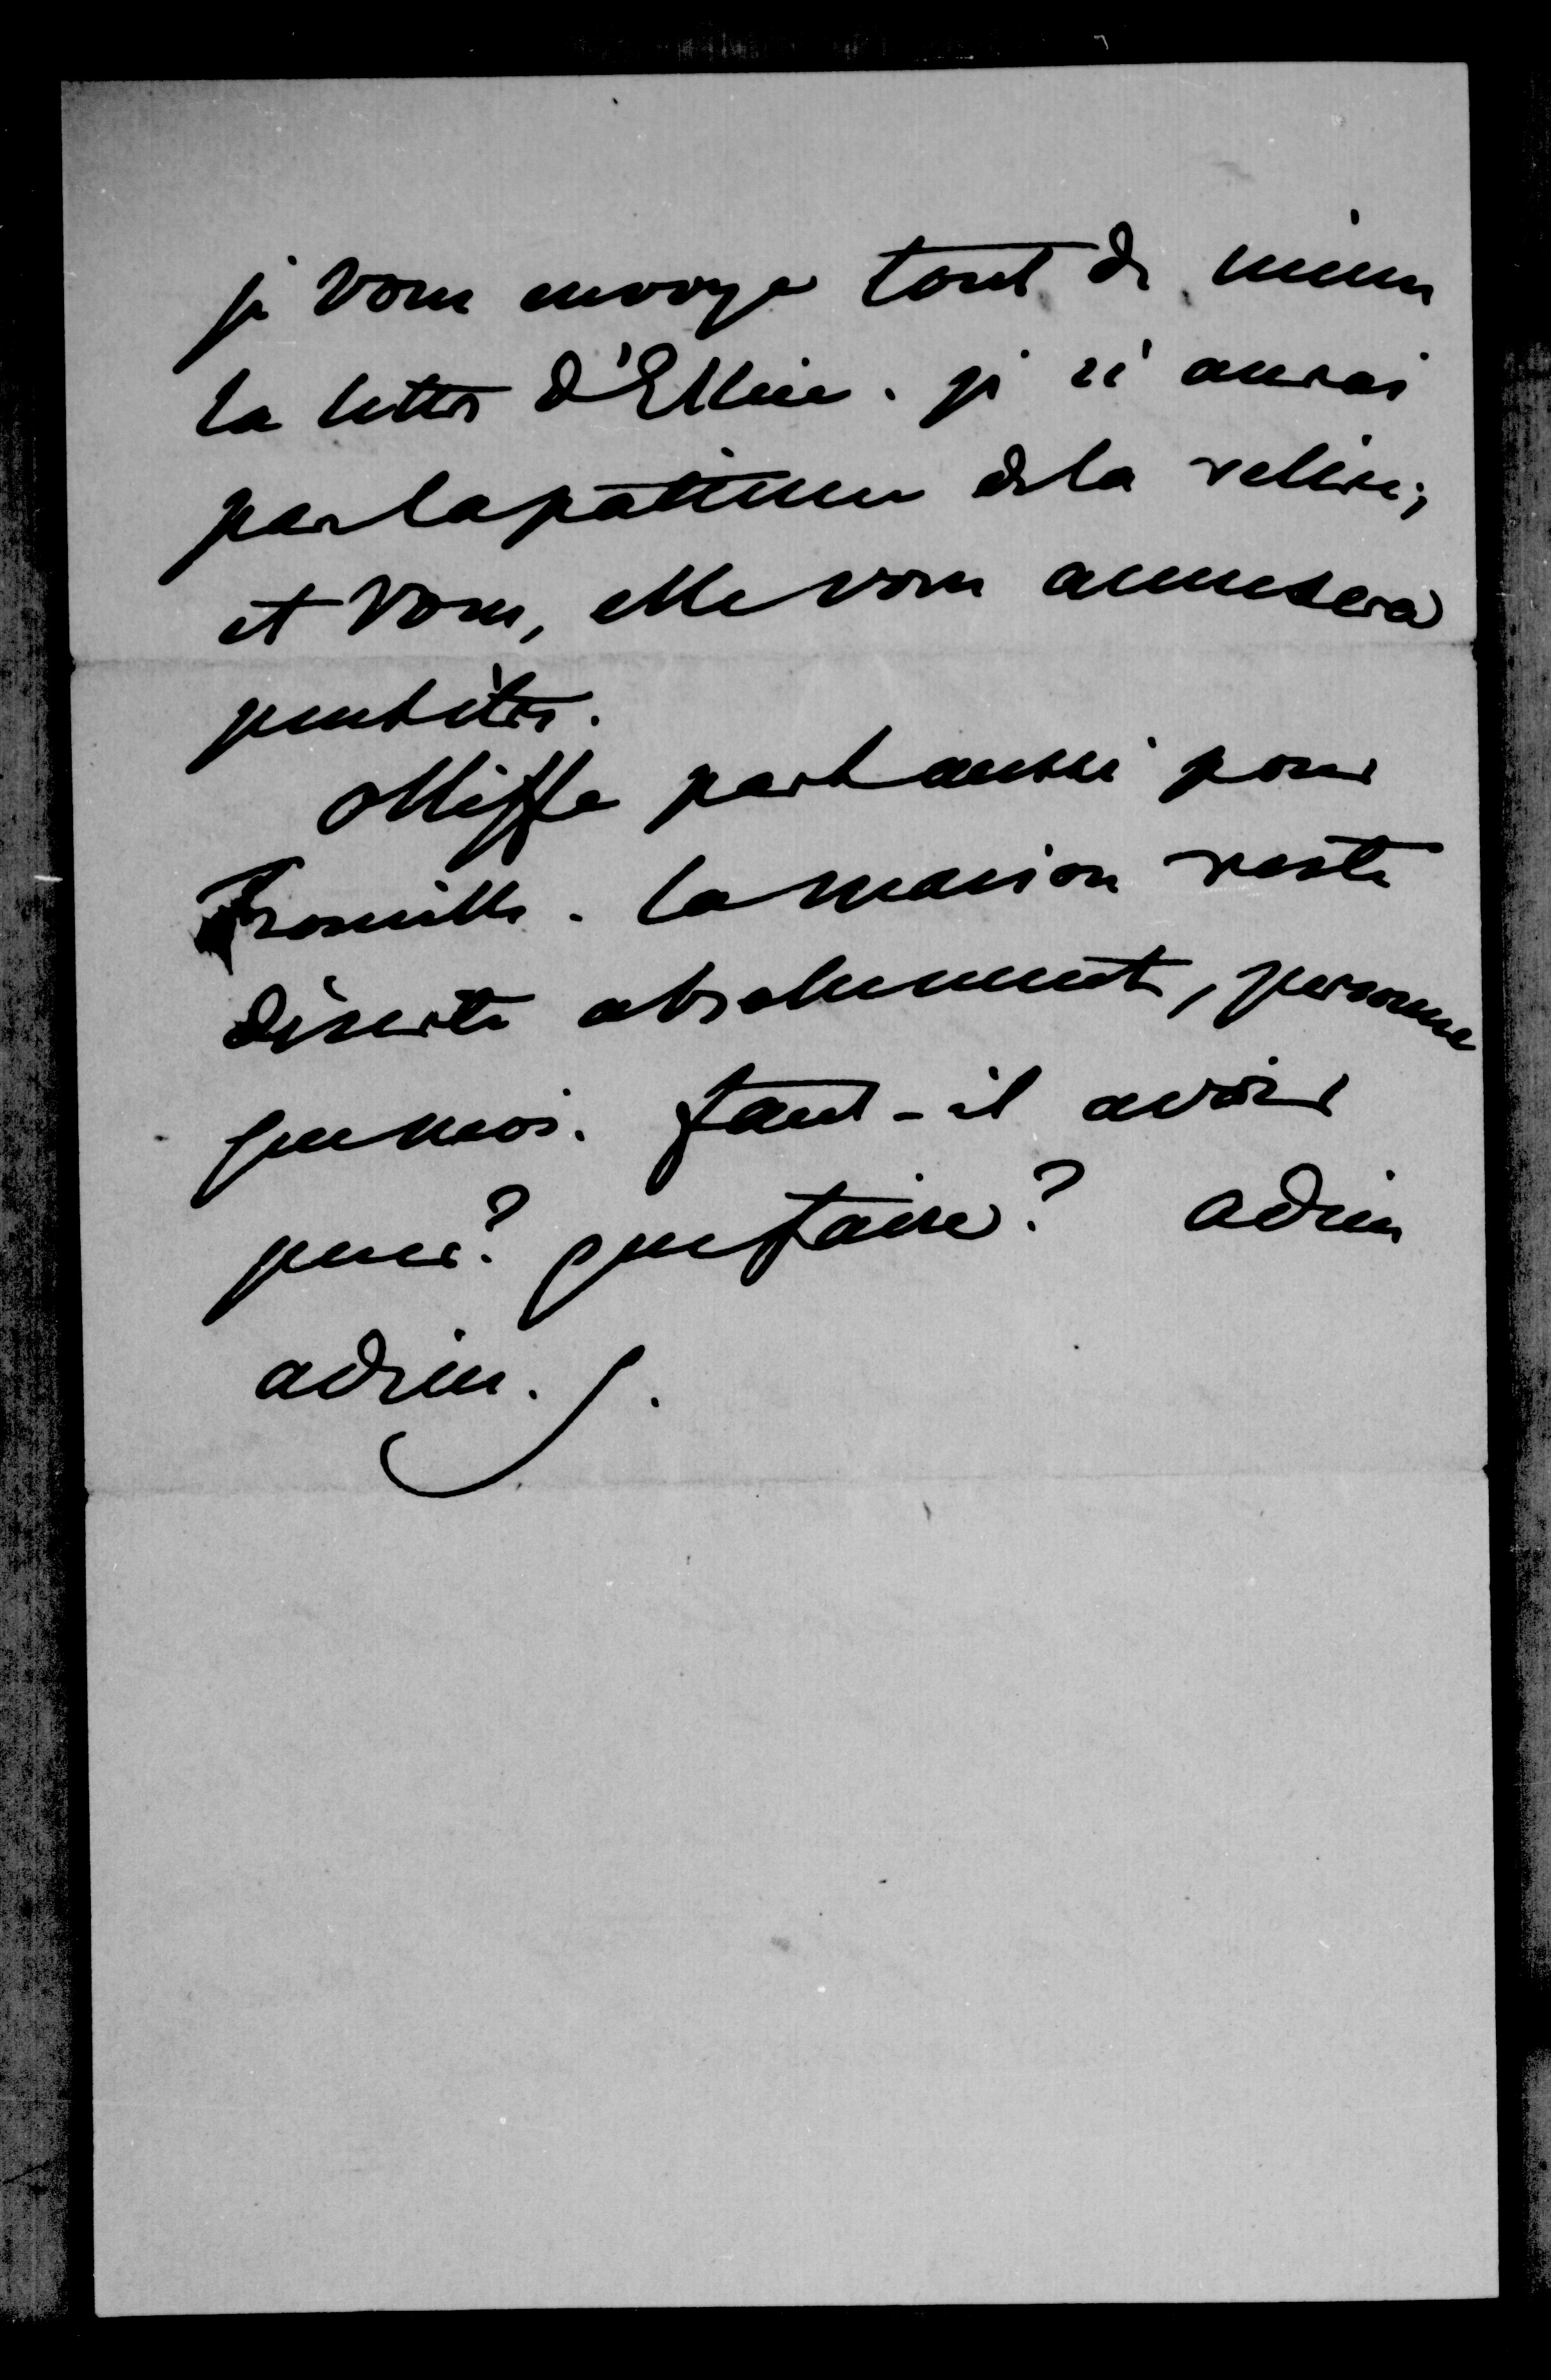 je vous envoye tout de même
la lettre d'Elleire. je n'aurai
pas la patience de la relire;
et vous, elle vous amusera
peut être.
Miffe part aussi pour
Trouville. la maison reste
déserte absolument, personne
que moi. faut-il avoir
peur? que faire? adieu
adieu. J.